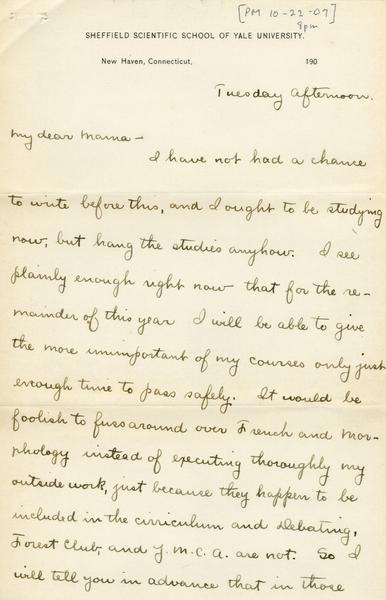 [PM 10-22-07]
8pm
SHEFFIELD SCIENTIFIC SCHOOL OF YALE UNIVERSITY.
New Haven, Connecticut, 190
Tuesday Afternoon.
My dear Mama—
I have not had a chance
to write before this, and I ought to be studying
now, but hang the studies anyhow. I see
plainly enough right now that for the re-
mainder of this year I will be able to give
the more unimportant of my courses only just
enough time to pass safely. It would be
foolish to fuss around over French and Mor-
phology instead of executing thoroughly my
outside work, just because they happen to be
included in the cirriculum and Debating,
Forest Club, and Y.M.C.A. are not. So I
will tell you in advance that in those